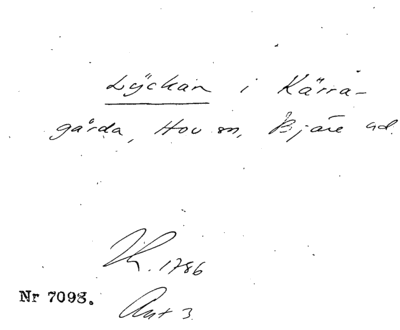 Lyckan i Kärra-
gårda, Hov sn, Bjäre hd.
Th. 1786
Nr 7093.
Ant 3.